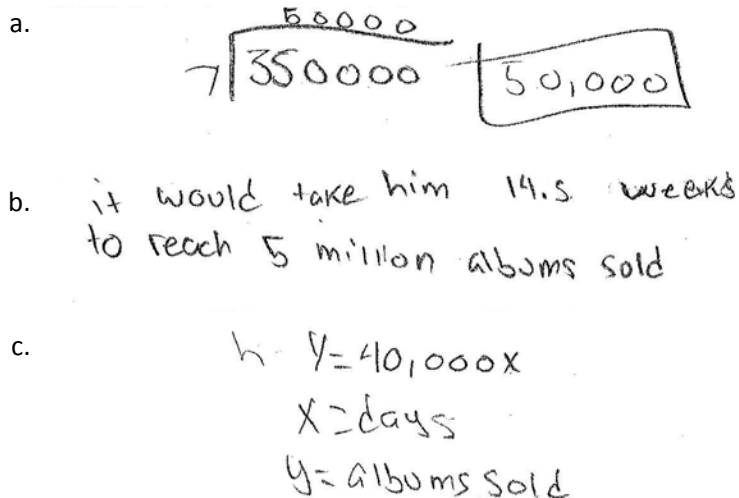 a.
50000
7 350000 50,000
b. it would take him 14.5 weeks
to reach 5 million albums sold
c. h y=40,000x
x=days
y=albums sold